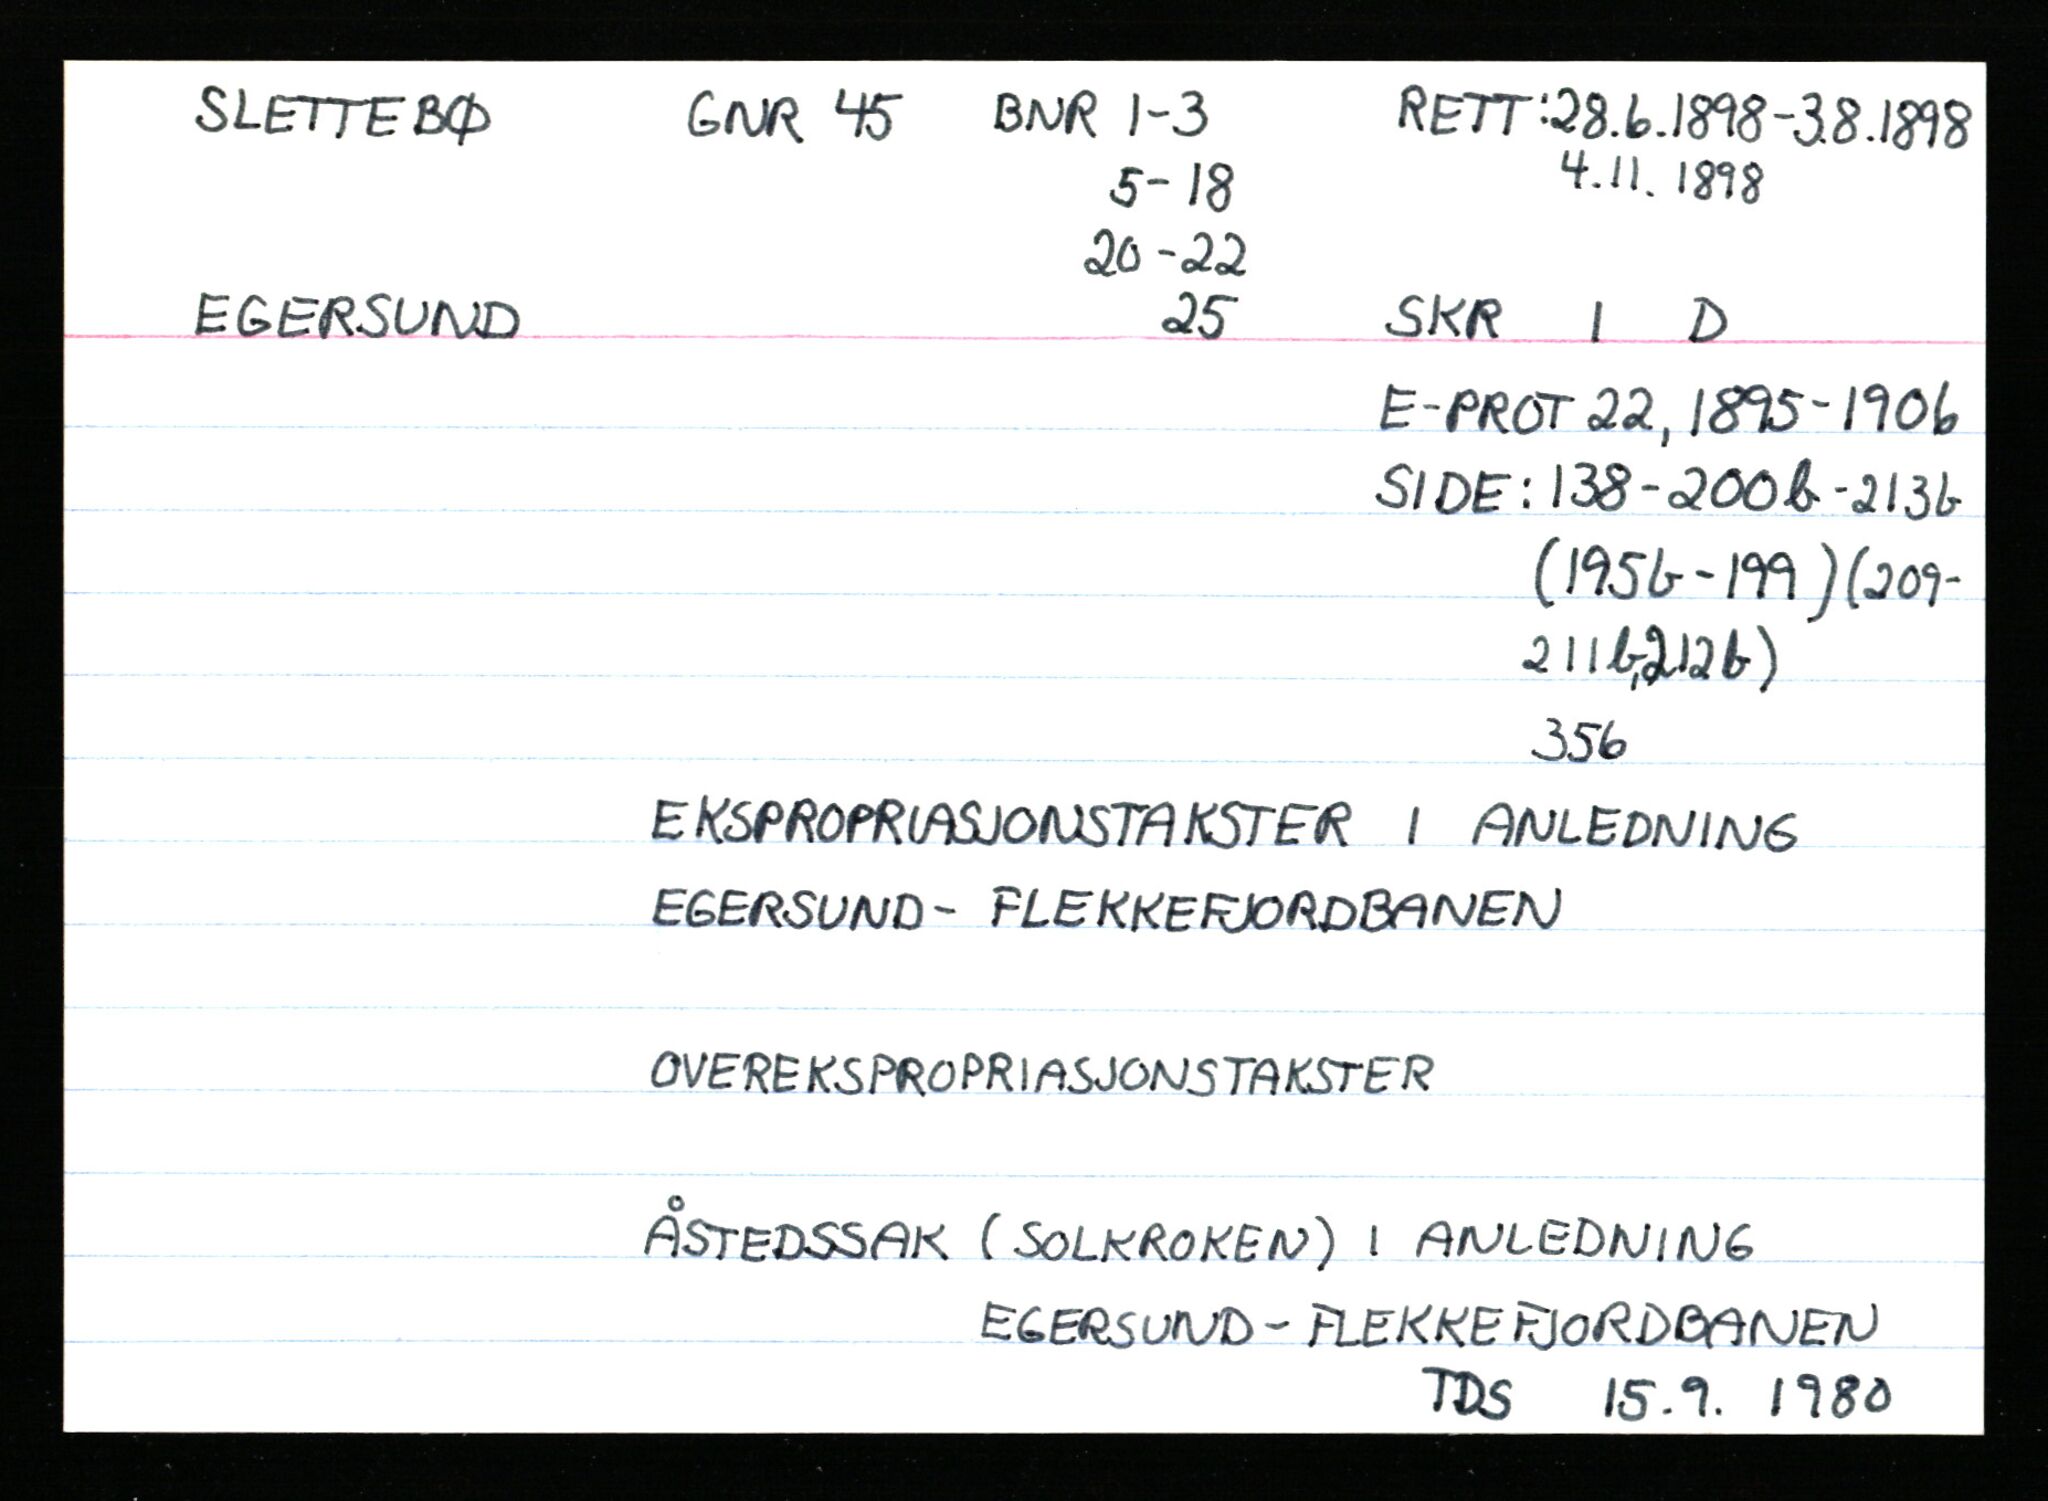 SLETTEBØ GNR 45 BNR 1-3 RETT: 28.6.1898-3.8.1898
5-18 4.11.1898
20-22
EGERSUND 25 SKR I D
E-PROT 22, 1895-1906
SIDE: 138-200b-213b
(195b-199) (209-
211b, 212b)
356
EKSPROPRIASJONSTAKSTER I ANLEDNING
EGERSUND- FLEKKEFJORDBANEN
OVEREKSPROPRIASJONSTAKSTER
ÅSTEDSSAK (SOLKROKEN) I ANLEDNING
EGERSUND-FLEKKEFJORDBANEN
TDS 15.9. 1980